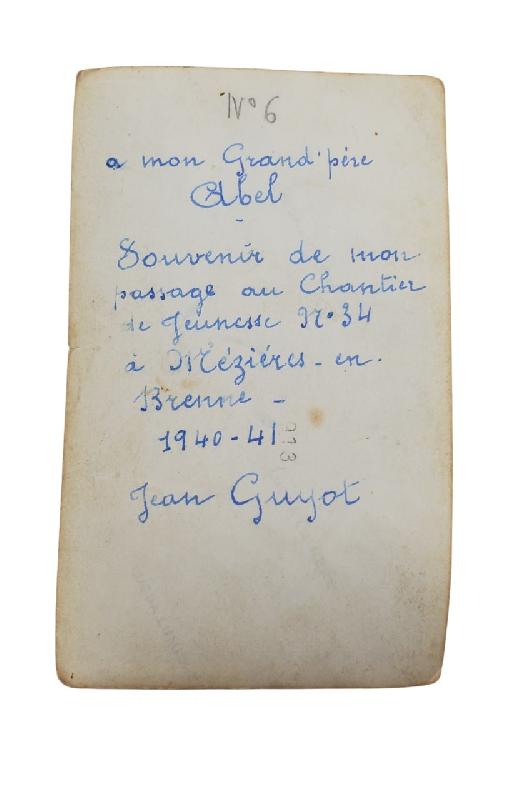 N° 6
a mon Grand'père
Abel
-
Souvenir de mon
passage au Chantier
de Jeunesse N° 34
à Mézières-en-
Brenne -
1940-41
913
Jean Guyot